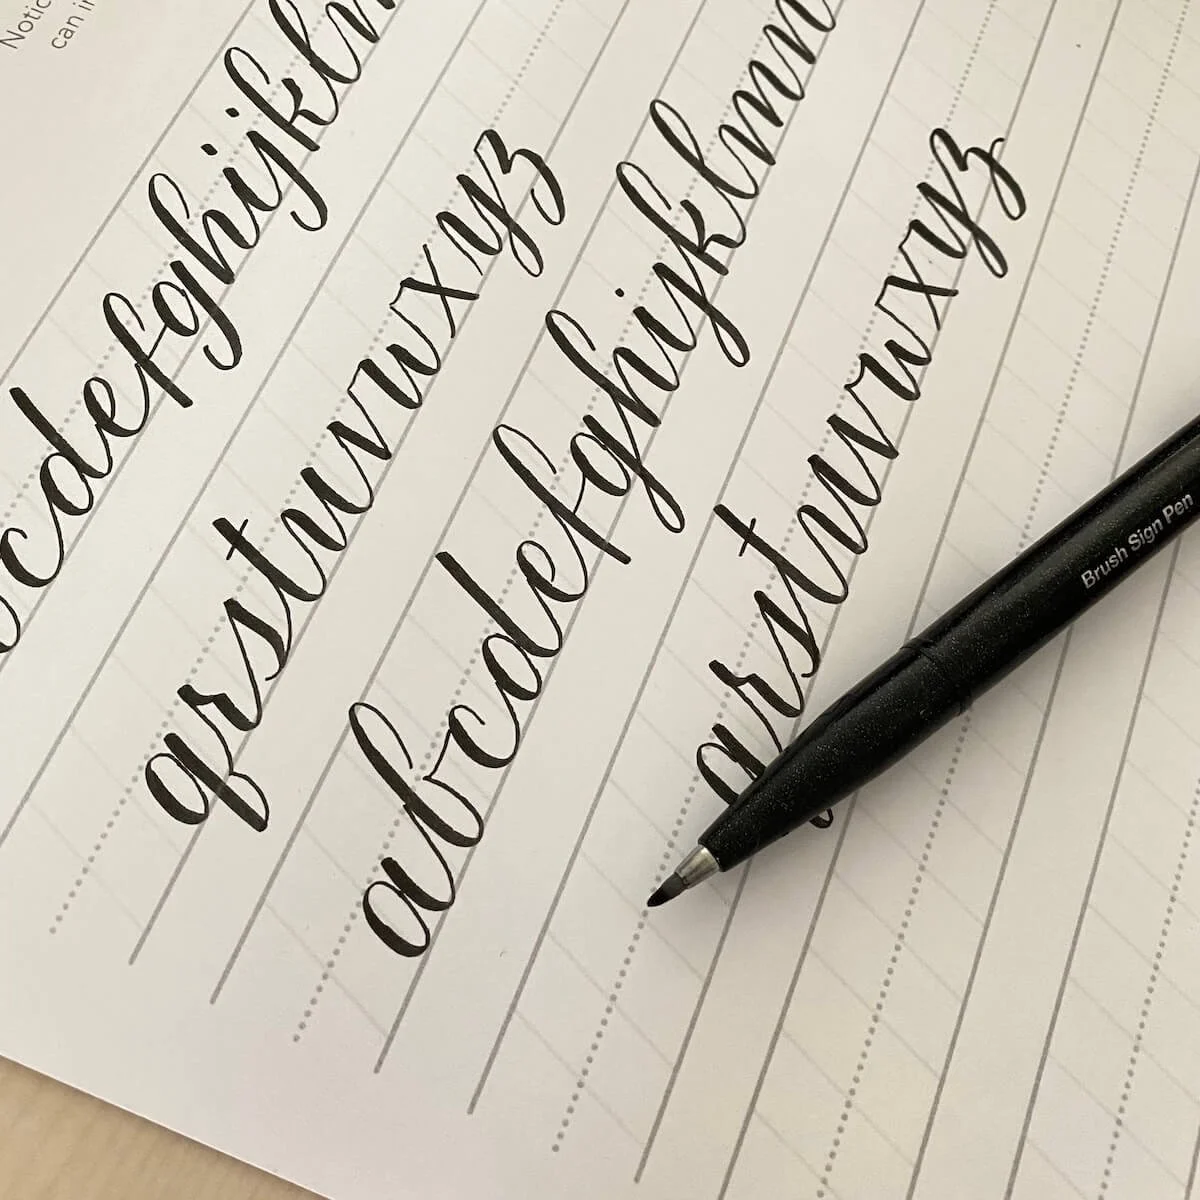 Notic
can
cdefghijkl
qrstuvwxyz
abcdefghijklmn
qrstuvwxyz
Brush Sign Pen